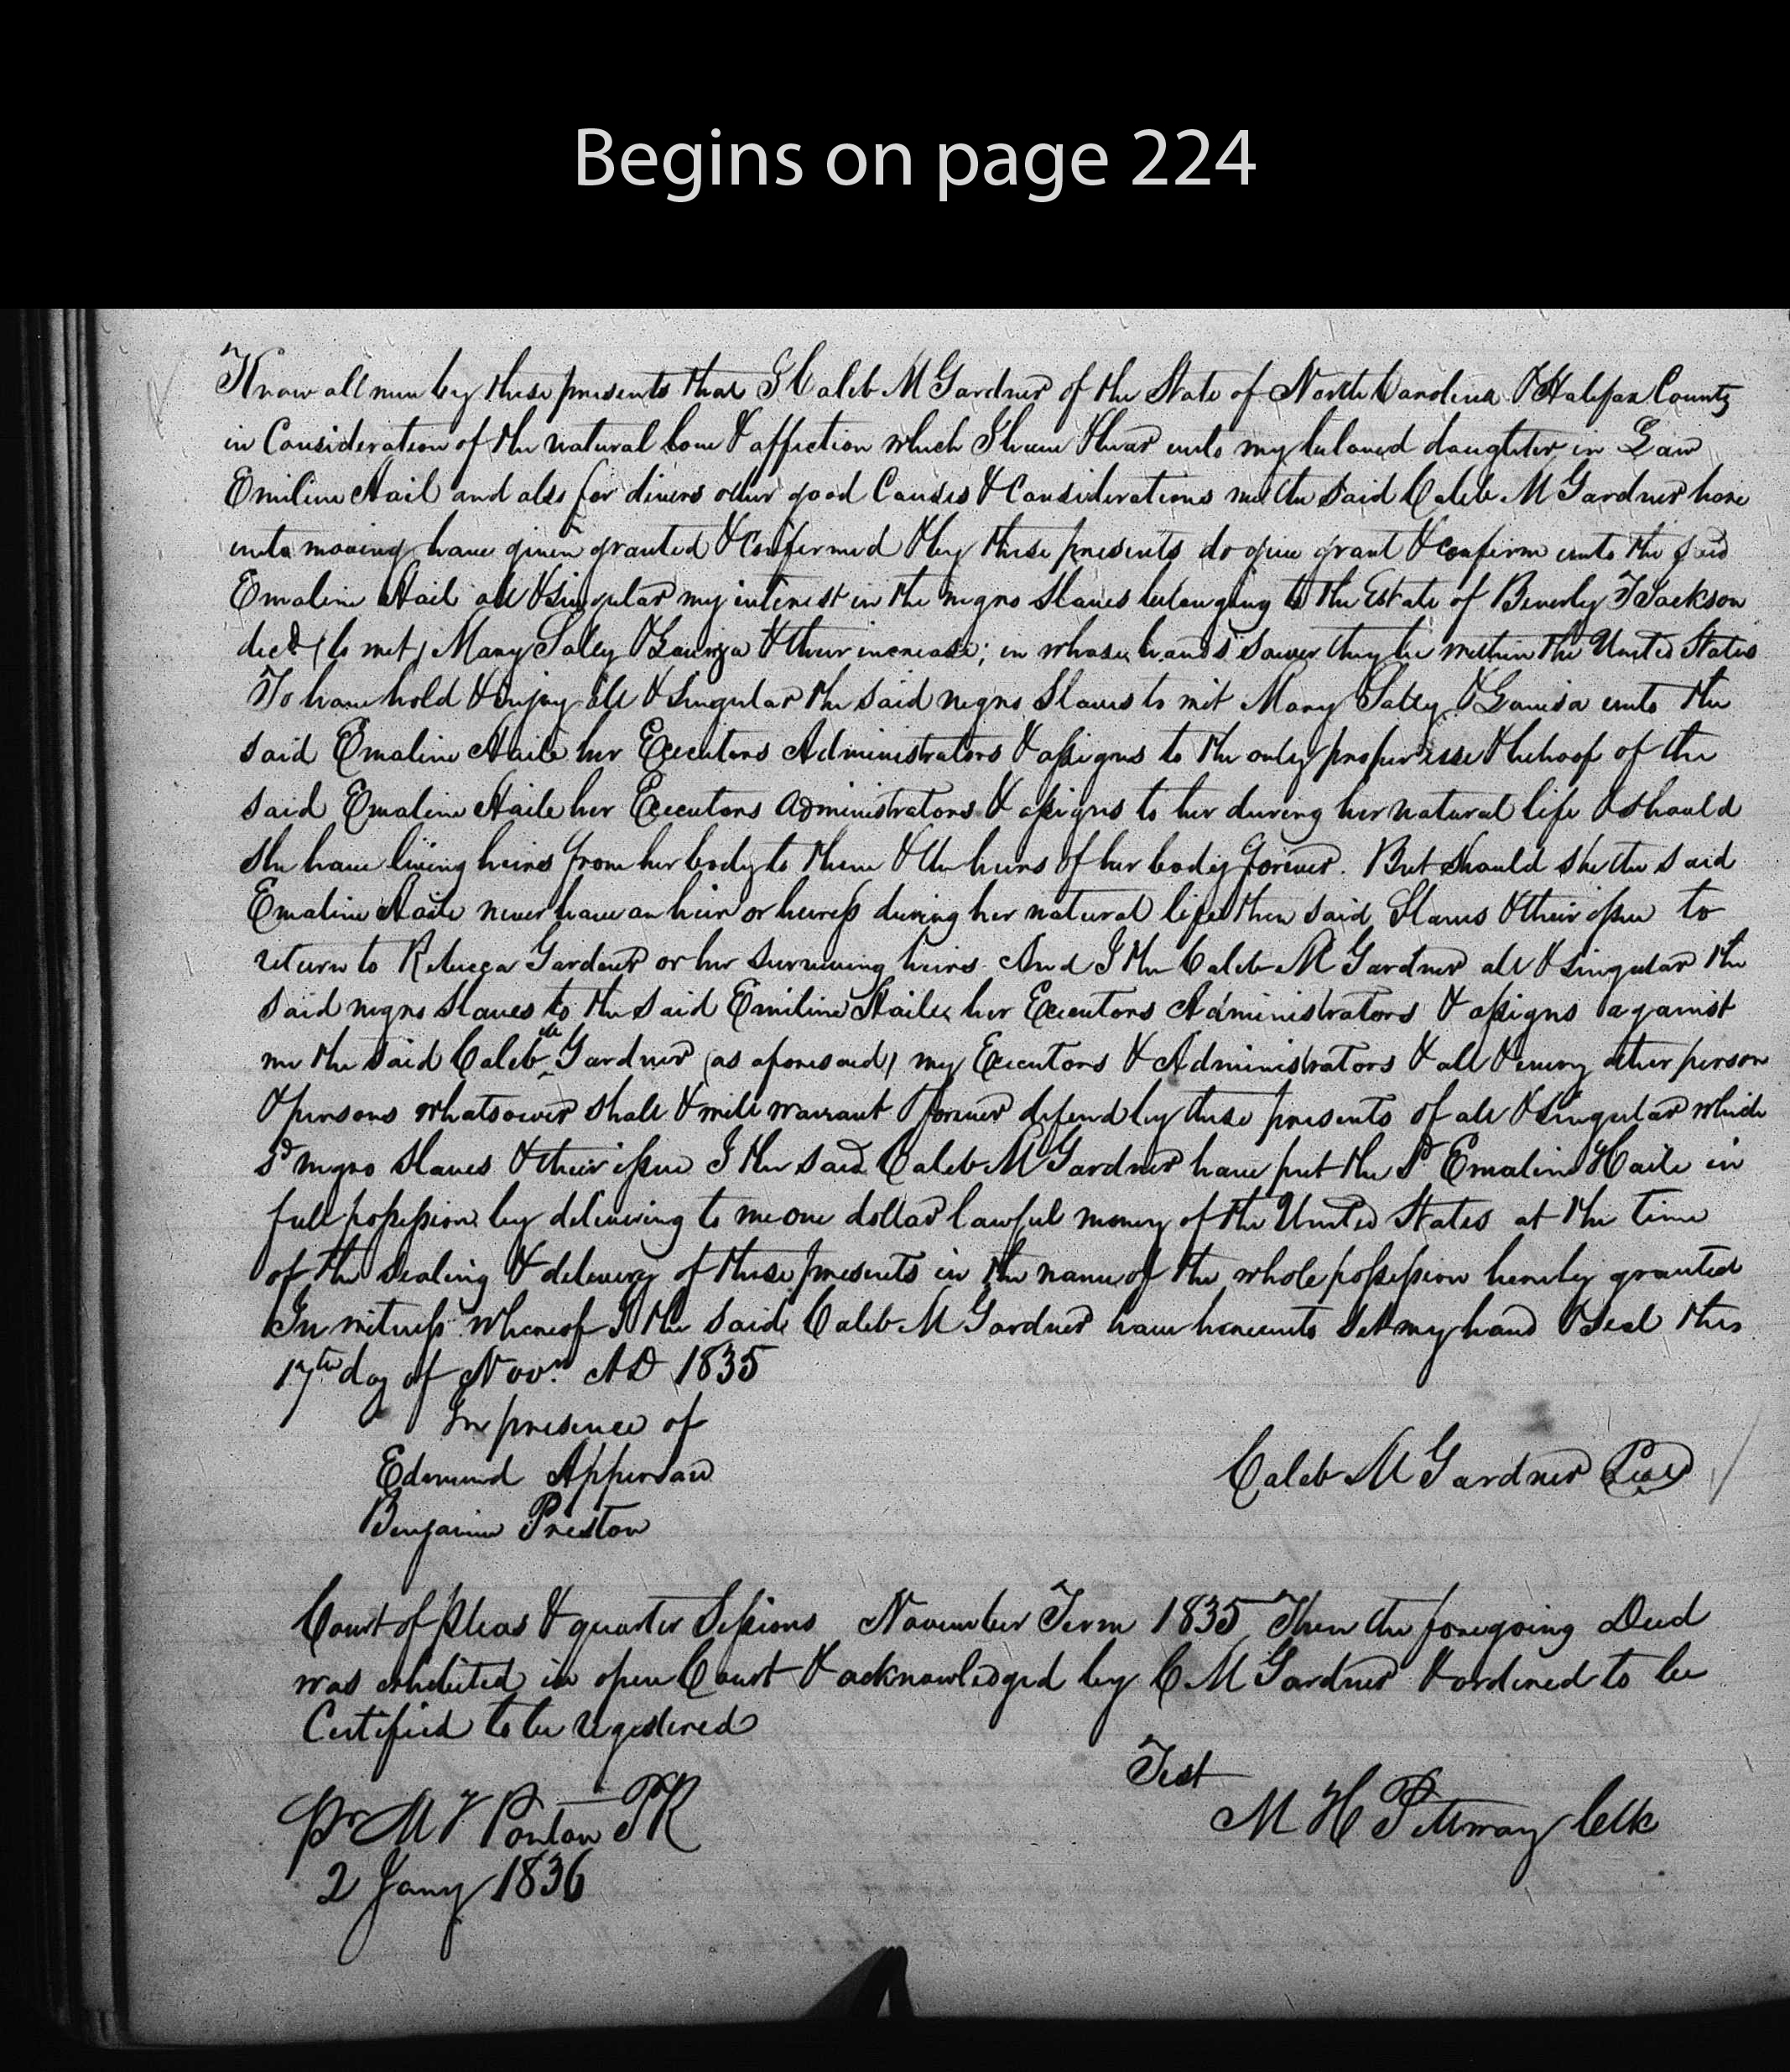 Begins on page 224
Know all men by these presents that I Caleb M Gardner of the State of North Carolina & Halifax County
in Consideration of the natural love & affection which I have & bear unto my beloved daughter in Law
Emiline Hail and also for divers other good Causes & Considerations me the said Caleb M Gardner here
unto moving have given granted & Confirmed & by these presents do give grant & confirm unto the said
Emaline Hail all & singular my interest in the negro Slaves belonging to the Estate of Beverly Jackson
decd (to wit) Mary Salley & & their increase; in whose hands soever they be within the United States
To have hold & enjoy all & singular the said negro Slaves to wit Mary Salley & Louisa unto the
said Emaline Haile her Executors Administrators & assigns to the only proper use & behoof of the
said Emaline Haile her Executors Administrators & assigns to her during her natural life & should
she have living heirs from her body to them & the heirs of her body forever. But should she the said
Emaline Haile never have an heir or heiress during her natural life then said Slaves & their issue to
return to Rebecca Gardner or her surviving heirs And I the Caleb M Gardner all & singular the
said negro slaves to the said Emiline Haile her Executors Administrators & assigns against
me the said Caleb M Gardner (as aforesaid) my Executors & Administrators & all & every other person
& persons whatsoever shall & will warrant & forever defend by these presents of all & singular which
sd negro slaves & their issue I the said Caleb M Gardner have put the sd Emaline Haile in
full possession by delivering to me one dollar lawful money of the United States at the time
of the sealing & delivery of these presents in the name of the whole possession hereby granted
In witness whereof I the said Caleb M Gardner have hereunto set my hand & seal this
17th day of Novr AD 1835
In presence of
Edmund Apperson
Caleb M Gardner Seal
Benjamin Preston
Court of pleas & quarter Sessions November Term 1835 Then the foregoing Deed
was exhibited in open Court & acknowledged by C M Gardner & ordered to be
Certified to be registered
Test
Pr M Ponton PR
M H Pittway Clk
2 Jany 1836